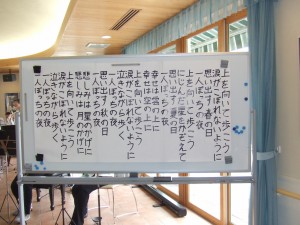 上を向いて歩こう
涙がこぼれないように
思い出す春の日
一人ぼっちの夜
上を向いて歩こう
にじんだ星を数えて
思い出す夏の日
一人ぼっちの夜
幸せは雲の上に
幸せは空の上に
上を向いて歩こう
涙がこぼれないように
泣きながら歩く
一人ぼっちの夜
思い出す秋の日
一人ぼっちの夜
悲しみは星のかげに
悲しみは月のかげに
上を向いて歩こう
涙がこぼれないように
泣きながら歩く
一人ぼっちの夜